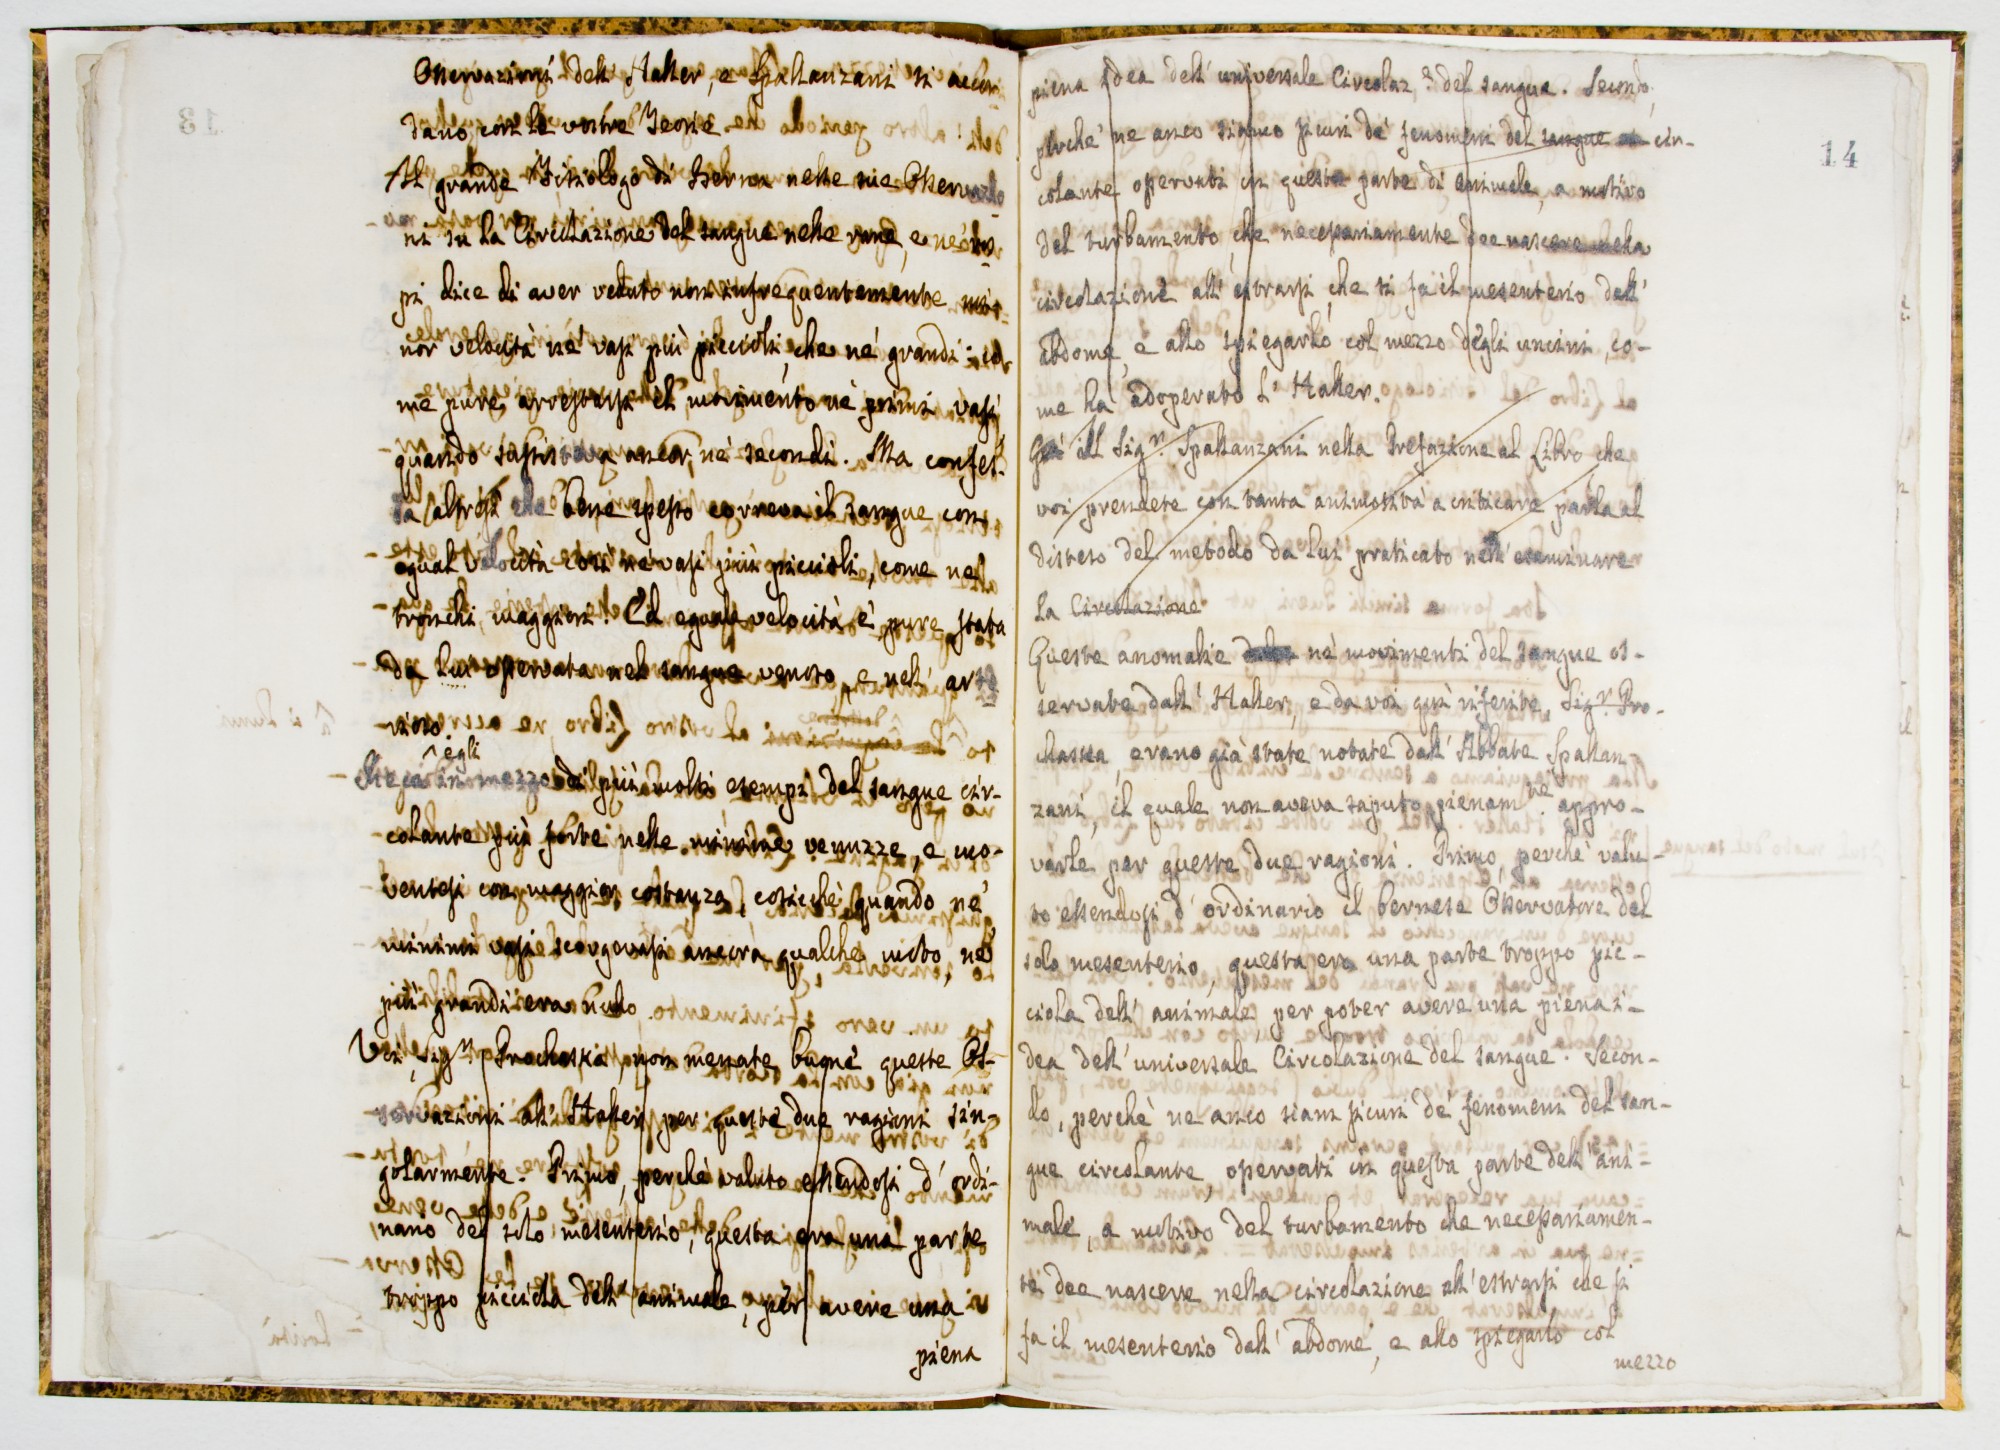 Osservazioni dell' Haller, e Spallanzani si accor-
dano con le vostre Teorie.
Il grande Fisiologo di Berna nelle sue Osservazio
ni su la Circolazione del sangue nelle rane, e ne'
pi dice di aver veduto non infrequentemente mi-
nor velocità ne' vasi più piccioli, che ne' grandi: co-
me pure arrestarsi il movimento ne' primi vasi
quando sussisteva ancor ne' secondi. Ma confes-
sa altresì che bene spesso correva il sangue con
egual velocità così ne' vasi più piccioli, come ne'
tronchi maggiori. Ed eguale velocità è pure stata
da lui osservata nel sangue venoso, e nell' arte
rioso.
egli
Reca in mezzo di più molti esempi del sangue cir-
colante più forte nelle minime venuzze, e mo-
ventesi con maggior costanza, cosicchè quando ne'
minimi vasi scorgevasi ancora qualche moto, ne'
più grandi era nullo.
Voi, Sig.r Prochaska, non menate buone queste Os-
servazioni all' Haller per queste due ragioni sin-
golarmente. Primo, perchè valuto essendosi d' ordi-
nario del solo mesenterio, questa era una parte
troppo picciola dell' animale, per avere una
piena
14
piena idea dell' universale Circolaz.e del sangue. Secondo,
perchè ne anco siamo sicuri de' fenomeni del sangue cir-
colante osservati in questa parte di animale, a motivo
del turbamento, che necessariamente dee nascere nella
circolazione all' estrarsi, che si fa il mesenterio dall'
abdome, e allo spiegarlo col mezzo degli uncini, co-
me ha adoperato l' Haller.
Già il Sig.r Spallanzani nella Prefazione al Libro che
voi prendete con tanta animosità a criticare parla al
disteso del metodo da lui praticato nell' esaminare
la Circolazione
Queste anomalie ne' movimenti del sangue os-
servate dall' Haller, e da voi qui riferite, Sig.r Pro-
chaska, erano già state notate dall' Abbate Spallan
zani, il quale non aveva saputo pienam.te appro-
varle per queste due ragioni. Primo, perchè valu-
to essendosi d' ordinario il bernese Osservatore del
solo mesenterio, questa era una parte troppo pic-
ciola dell' animale per poter avere una piena i-
dea dell' universale Circolazione del sangue. Secon-
do, perchè ne anco siam sicuri de' fenomeni del san-
gue circolante, osservati in questa parte dell' ani-
male, a motivo del turbamento che necessariamen-
te dee nascere nella circolazione all' estrarsi che si
fa il mesenterio dall' abdome, e allo spiegarlo col
mezzo